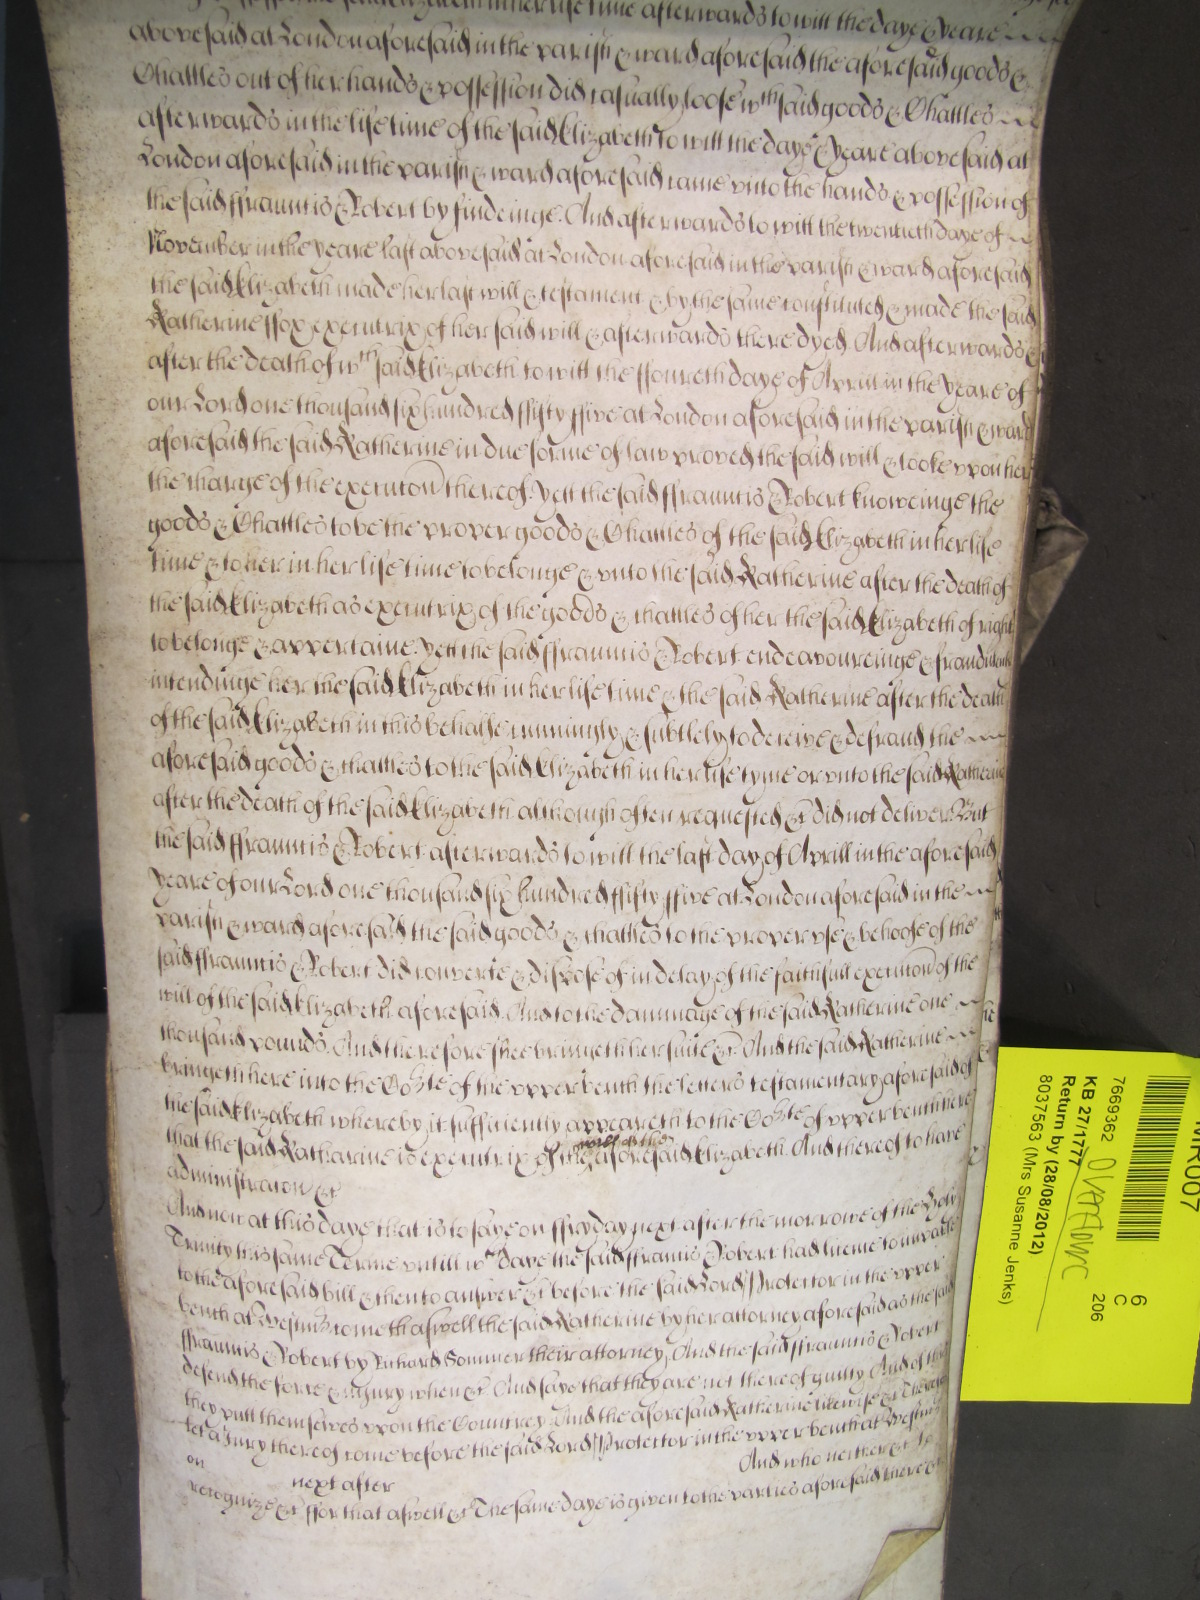 in her life time afterwards to witt the daye & yeare
abovesaid at London aforesaid in the parish & ward aforesaid the aforesaid goods &
Chattles out of her hands & possession did casually loose wth said goods & Chattles
afterwards in the life time of the said Elizabeth to witt the daye & yeare abovesaid at
London aforesaid in the parish & ward aforesaid came vnto the hands & possession of
the said ffrauncis & Robert by findeinge. And afterwards to witt the twentieth daye of
November in the yeare last abovesaid at London aforesaid in the parish & ward aforesaid
the said Elizabeth made her last will & testament & by the same constituted & made the said
Katherine ffox executrix of her said will & afterwards there dyed And afterwards &
after the death of wth said Elizabeth to witt the ffoureth daye of Aprill in the yeare of
our Lord one thousand six hundred ffifty ffive at London aforesaid in the parish & ward
aforesaid the said Katherine in due forme of law proved the said will & tooke vpon her
the charge of the execucon thereof. Yett the said ffrauncis & Robert knoweinge the
goods & Chattles to be the proper goods & Chattles of the said Elizabeth in her life
time & to her in her life time to belonge & vnto the said Katherine after the death of
the said Elizabeth as executrix of the goods & chattles of her the said Elizabeth of right
to belonge & appertaine. Yett the said ffrauncis & Robert endeavoureinge & fraudulently
intendinge her the said Elizabeth in her life time & the said Katherine after the death
of the said Elizabeth in this behalfe cunningly & subtlely to deceive & defraud the
aforesaid goods & chattles to the said Elizabeth in her life tyme or vnto the said Katherine
after the death of the said Elizabeth although often requested &c did not deliver But
the said ffrauncis & Robert afterwards to witt the last day of Aprill in the aforesaid
yeare of our Lord one thousand six hundred ffifty ffive at London aforesaid in the
parish & ward aforesaid the said goods & chattles to the proper vse & behoofe of the
said ffrauncis & Robert did converte & dispose of in delay of the faithfull execucon of the
will of the said Elizabeth aforesaid. And to the dammage of the said Katherine one
thousand pounds. And therefore shee bringeth her suite &c And the said Katherine
bringeth here into the Corte of the vpper bench the letters testamentary aforesaid of
the said Elizabeth whereby it sufficiently appeareth to the Corte of vpper bench here
that the said Katharine is executrix of the will of the aforesaid Elizabeth. And thereof to have
administracon &c
And now at this daye that is to saye on ffryday next after the morrowe of the Holy
Trinity this same Terme vntill wch daye the said ffrancis & Robert had licence to imparle
to the aforesaid bill & then to answer &c before the said Lord Protector in the vpper
bench at Westmr cometh aswell the said Katherine by her attorney aforesaid as the said
ffrauncis & Robert by Richard Sommer their attorney, And the said ffrauncis & Robert
defend the force & injury when &c And saye that they are not thereof guilty And of this
they putt themselves vpon the Countrey. And the aforesaid Katherine likewise &c Therefore
let a Jury thereof come before the said Lord Protector in the vpper bench at Westmr
on next after And who neither &c to
recognize &c ffor that aswell &c The same daye is given to the parties aforesaid there &c
MR007
7669362
6
C
206
KB 27/1777
Return by (28/08/2012)
8037563 (Mrs Susanne Jenks)